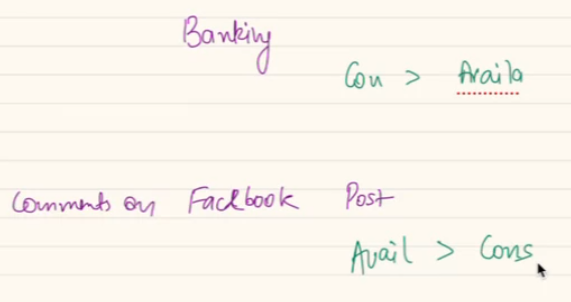 Banking
Con > Availa
Comments on Facebook Post
Avail > Cons